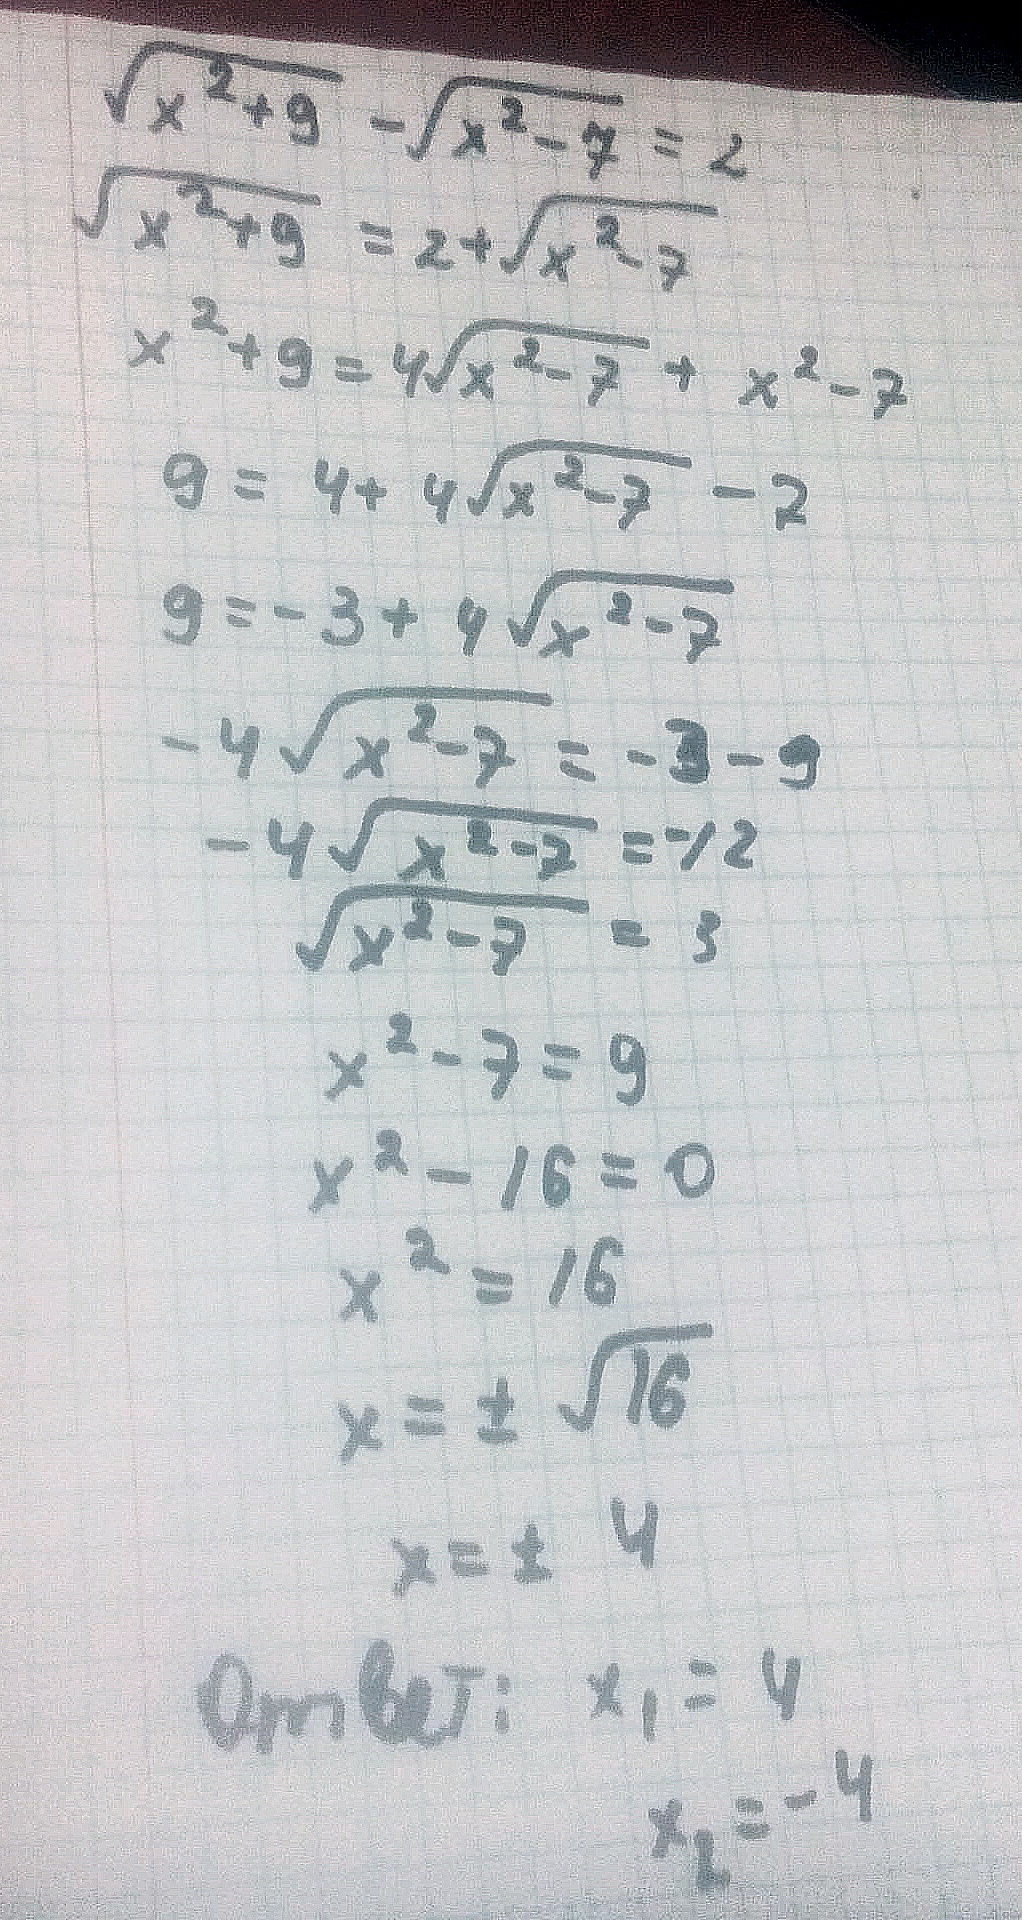 √(x²+9) - √(x²-7) = 2
√(x²+9) = 2+√(x²-7)
x²+9 = 4√(x²-7) + x²-7
9 = 4+ 4√(x²-7) - 7
9 = -3 + 4√(x²-7)
-4√(x²-7) = -3 - 9
-4√(x²-7) = -12
√(x²-7) = 3
x² - 7 = 9
x² - 16 = 0
x² = 16
x = ± √16
x = ± 4
Ответ: x₁ = 4
x₂ = -4